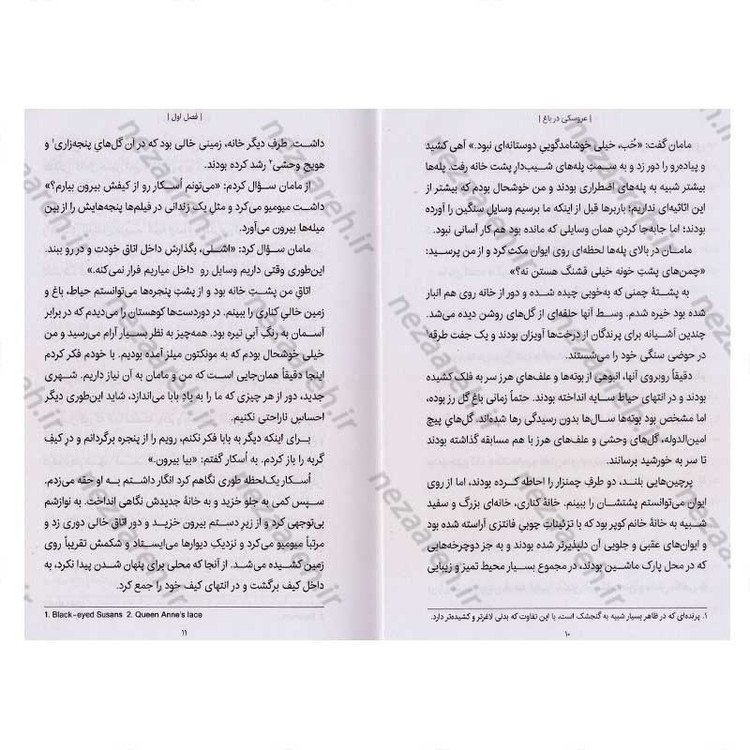 | عروسکی در باغ |
مامان گفت: «خُب، خیلی خوشامدگوییِ دوستانه‌ای نبود.» آهی کشید
و پیاده‌رو را دور زد و به سمتِ پله‌های شیب‌دارِ پشت خانه رفت. پله‌ها
بیشتر شبیه به پله‌های اضطراری بودند و من خوشحال بودم که بیشتر از
این اثاثیه‌ای نداریم؛ باربرها قبل از اینکه ما برسیم وسایل سنگین را آورده
بودند؛ اما جابه‌جا کردنِ همان وسایلی که مانده بود هم کار آسانی نبود.
مامان در بالای پله‌ها لحظه‌ای روی ایوان مکث کرد و از من پرسید:
«چمن‌های پشتِ خونه خیلی قشنگ هستن نه؟»
به پشتهٔ چمنی که به‌خوبی چیده شده و دور از خانه روی هم انبار
شده بود خیره شدم. وسط آنها حلقه‌ای از گل‌های روشن دیده می‌شد.
چندین آشیانه برای پرندگان از درخت‌ها آویزان بودند و یک جفت طرقه۱
در حوضی سنگی خود را می‌شستند.
دقیقاً روبروی آنها، انبوهی از بوته‌ها و علف‌های هرز سر به فلک کشیده
بودند و در انتهای حیاط سایه انداخته بودند. حتماً زمانی باغِ گل رز بوده،
اما مشخص بود بوته‌ها سال‌ها بدون رسیدگی رها شده‌اند. گل‌های پیچ
امین‌الدوله، گل‌های وحشی و علف‌های هرز با هم مسابقه گذاشته بودند
تا سر به خورشید برسانند.
پرچین‌هایی بلند، دو طرف چمنزار را احاطه کرده بودند، اما از روی
ایوان می‌توانستم پشتشان را ببینم. خانهٔ کناری، خانه‌ای بزرگ و سفید
شبیه به خانهٔ خانم کوپر بود که با تزئیناتِ چوبیِ فانتزی آراسته شده بود
و ایوان‌های عقبی و جلویی آن دلپذیرتر شده بودند و به جز دوچرخه‌هایی
که در محل پارک ماشین بودند، در مجموع بسیار محیط تمیز و زیبایی
۱. پرنده‌ای که در ظاهر بسیار شبیه به گنجشک است، با این تفاوت که بدنی لاغرتر و کشیده‌تر دارد.
۱۰
| فصل اول |
داشت. طرف دیگر خانه، زمینی خالی بود که در آن گل‌های پنجه‌زاری۱ و
هویج وحشی۲ رشد کرده بودند.
از مامان سؤال کردم: «می‌تونم اُسکار رو از کیفش بیرون بیارم؟»
داشت میومیو می‌کرد و مثل یک زندانی در فیلم‌ها پنجه‌هایش را از بین
میله‌ها بیرون می‌آورد.
مامان سؤال کرد: «اشلی، بگذارش داخل اتاق خودت و در رو ببند.
این‌طوری وقتی داریم وسایل رو داخل میاریم فرار نمی‌کنه.»
اتاق من پشتِ خانه بود و از پشتِ پنجره‌ها می‌توانستم حیاط، باغ و
زمین خالیِ کناری را ببینم. در دوردست‌ها کوهستان را می‌دیدم که در برابر
آسمان به رنگِ آبیِ تیره بود. همه‌چیز به نظر بسیار آرام می‌رسید و من
خیلی خوشحال بودم که به مونکتون میلز آمده بودیم. با خودم فکر کردم
اینجا دقیقاً همان‌جایی است که من و مامان به آن نیاز داریم. شهری
جدید، دور از هر چیزی که ما را به یادِ بابا می‌اندازد، شاید این‌طوری دیگر
احساسِ ناراحتی نکنیم.
برای اینکه دیگر به بابا فکر نکنم، رویم را از پنجره برگرداندم و درِ کیفِ
گربه را باز کردم. به اُسکار گفتم: «بیا بیرون.»
اُسکار یک‌لحظه طوری نگاهم کرد انگار داشتم به او حقه می‌زدم.
سپس کمی به جلو خزید و به خانهٔ جدیدش نگاهی انداخت. به نوازشم
بی‌توجهی کرد و از زیرِ دستم بیرون خزید و دور اتاق خالی دوری زد و
مرتباً میومیو می‌کرد و نزدیک دیوارها می‌ایستاد و شکمش تقریباً روی
زمین کشیده می‌شد. از آنجا که محلی برای پنهان شدن پیدا نکرد، به
داخل کیف برگشت و در انتهای کیف خود را جمع کرد.
1. Black-eyed Susans 2. Queen Anne's lace
۱۱
nezaareh.ir